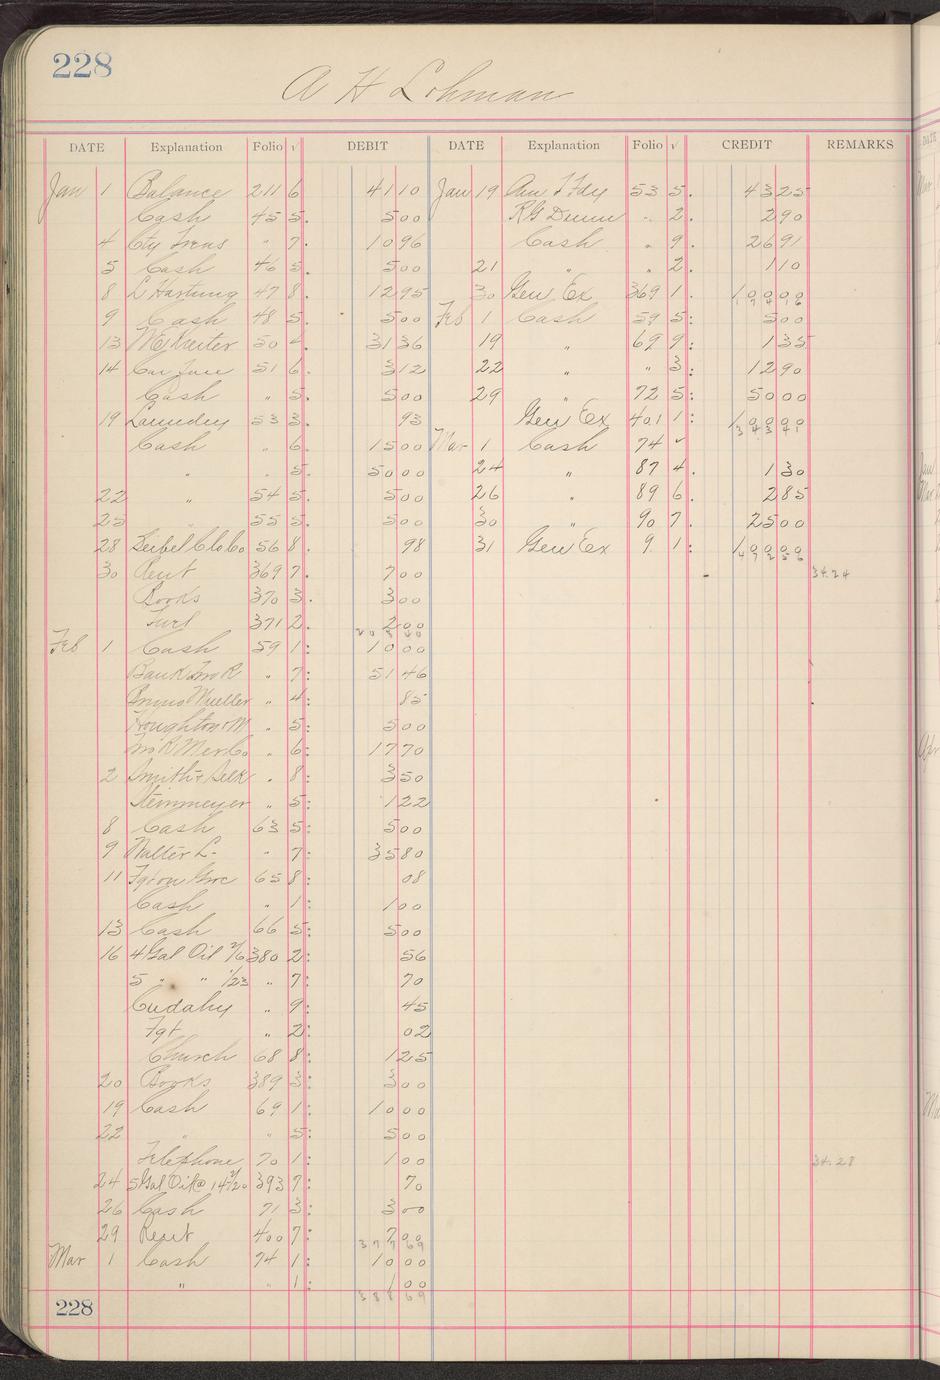 228
A H Lohman
DATE Explanation Folio √ DEBIT DATE Explanation Folio √ CREDIT REMARKS
Jan 1 Balance 211 6 41 10 Jan 19 Am T Fdy 53 5. 43 25
Cash 45 5. 5 00 R G Dunn " 2. 2 90
4 Cty Treas " 7. 10 96 Cash " 9. 26 91
5 Cash 46 5. 5 00 21 " " 2. 1 10
8 L Hartung 47 8. 12 95 30 Gen Ex 369 1. 100 00
9 Cash 48 5. 5 00 Feb 1 Cash 59 5: 5 00
13 50 4. 31 36 19 " 69 9: 1 35
14 Car Fare 51 6. 3 12 22 " " 3: 12 90
Cash " 5. 5 00 29 " 72 5: 50 00
19 Laundry 53 3. 93 Gen Ex 401 1: 100 00
Cash " 6. 15 00 Mar 1 Cash 74 ✓
" " 5. 50 00 24 " 87 4. 1 30
22 " 54 5. 5 00 26 " 89 6. 2 85
25 " 55 5. 5 00 30 " 90 7. 25 00
28 Seibel Clo Co 56 8. 98 31 Gen Ex 9 1: 100 00
30 Rent 369 7. 7 00 34.24
Books 370 3. 3 00
Fuel 371 2. 2 00
Feb 1 Cash 59 1: 10 00
Bank " 7: 51 46
Mueller " 4: 85
Houghton M " 5: 5 00
Mer Co " 6: 17 70
2 Smith + Selk " 8: 3 50
Steinmeyer " 5: 1 22
8 Cash 63 5: 5 00
9 Walter L- " 7: 35 80
11 Fgt on Groc 65 8: 08
Cash " 1: 1 00
13 Cash 66 5: 5 00
16 4 Gal Oil 2/6 380 2: 56
5 " " 1/23 " 7: 70
Cudahy " 9: 45
Fgt " 2: 02
Church 68 8: 1 25
20 Books 389 3: 3 00
19 Cash 69 1: 10 00
22 " " 5: 5 00
Telephone 70 1: 1 00 34.28
24 5 Gal Oil @ 14 2/20 393 7: 70
26 Cash 71 3: 3 00
29 Rent 400 7: 7 00
377 69
Mar 1 Cash 74 1: 10 00
" " 1: 1 00
388 69
228